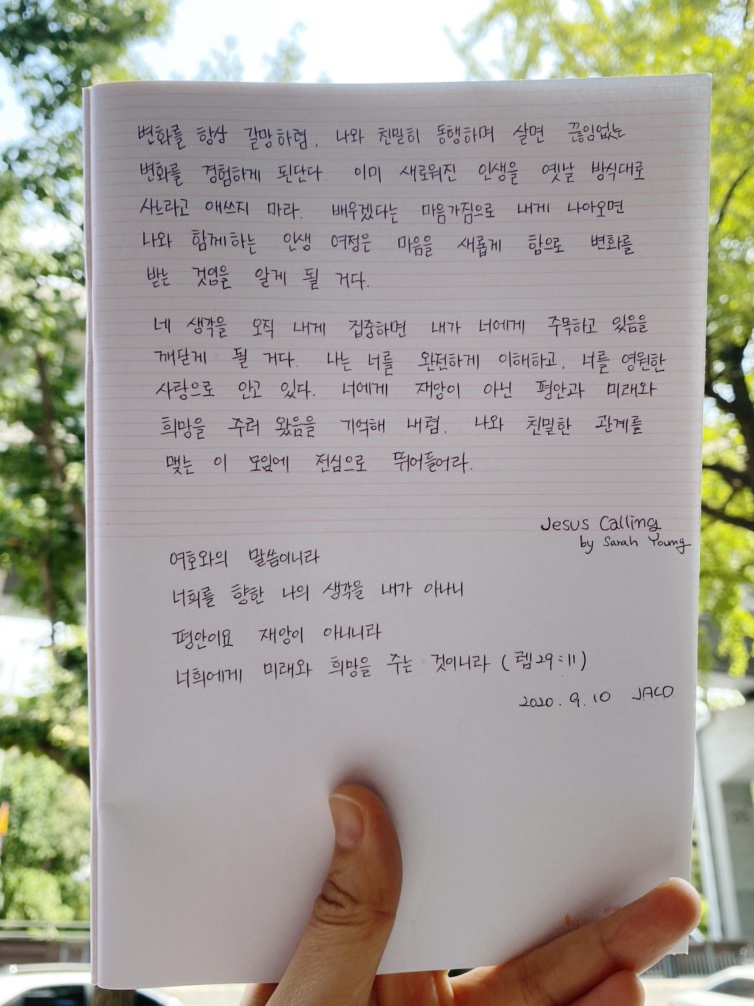 변화를 항상 갈망하렴. 나와 친밀히 동행하며 살면 끊임없는
변화를 경험하게 된단다. 이미 새로워진 인생을 옛날 방식대로
사느라고 애쓰지 마라. 배우겠다는 마음가짐으로 내게 나아오면
나와 함께하는 인생 여정은 마음을 새롭게 함으로 변화를
받는 것임을 알게 될 거다.
네 생각을 오직 내게 집중하면 내가 너에게 주목하고 있음을
깨닫게 될 거다. 나는 너를 완전하게 이해하고, 너를 영원한
사랑으로 안고 있다. 너에게 재앙이 아닌 평안과 미래와
희망을 주러 왔음을 기억해 내렴. 나와 친밀한 관계를
맺는 이 모임에 전심으로 뛰어들어라.
Jesus Calling
by Sarah Young
여호와의 말씀이니라
너희를 향한 나의 생각을 내가 아나니
평안이요 재앙이 아니니라
너희에게 미래와 희망을 주는 것이니라 (렘29:11)
2020. 9. 10 JACO